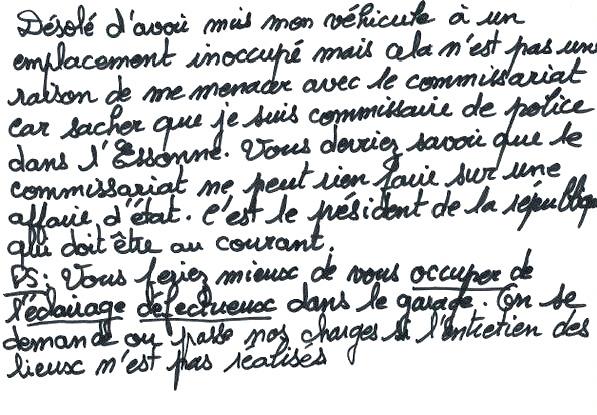 Désolé d'avoir mis mon véhicule à un
emplacement inoccupé mais cela n'est pas une
raison de me menacer avec le commissariat
car sacher que je suis commissaire de police
dans l'Essonne. Vous devriez savoir que le
commissariat ne peut rien faire sur une
affaire d'état. C'est le président de la république
qui doit être au courant.
PS: Vous feriez mieux de vous occuper de
l'éclairage défectueux dans le garage. On se
demande où passe nos charges si l'entretien des
lieux n'est pas réalisés